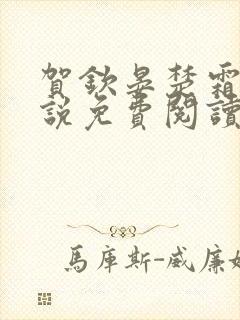 賀欽晏楚霜
說免費閱讀
馬庫斯-威廉